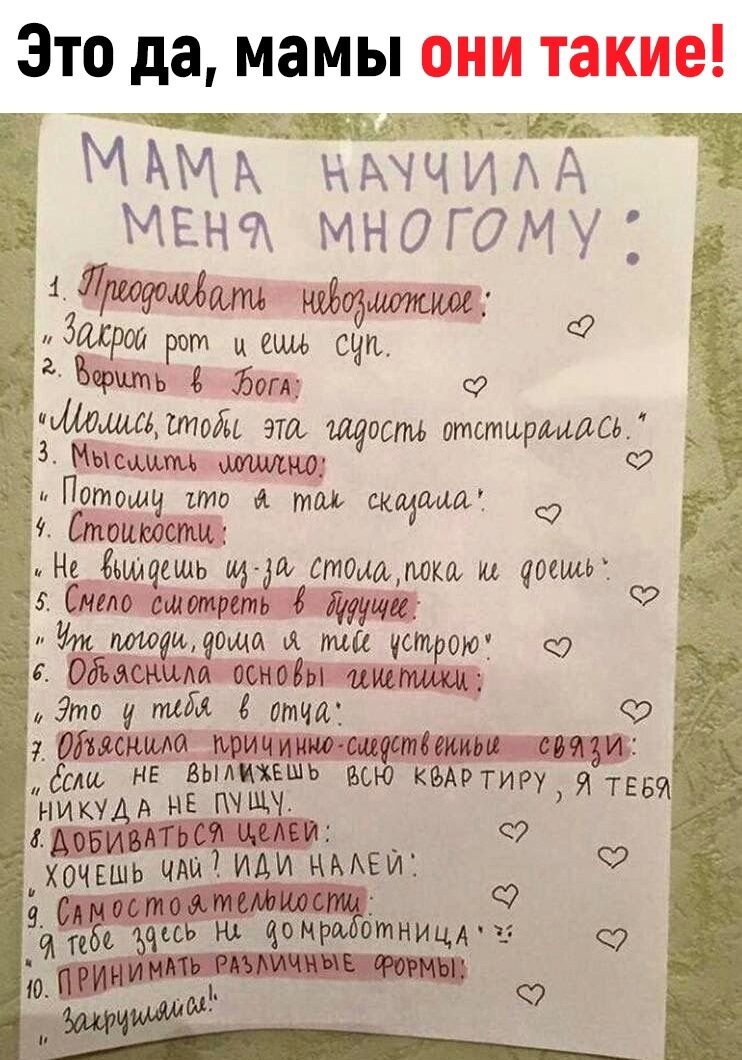 Это да, мамы они такие!
МАМА НАУЧИЛА
МЕНЯ МНОГОМУ:
1. Преодолевать невозможное:
„Закрой рот и ешь суп.
2. Верить в Бога:
"Молись, чтобы эта гадость отстиралась."
3. Мыслить логично:
„Потому что я так сказала"
4. Стоикости:
„Не выйдешь из-за стола, пока не доешь"
5. Смело смотреть в будущее:
„Уж погоди, дома я тебе устрою"
6. Объяснила основы генетики:
„Это у тебя в отца"
7. Объяснила причинно-следственные связи:
„Если НЕ ВЫЛИЖЕШЬ ВСЮ КВАРТИРУ, Я ТЕБЯ
НИКУДА НЕ ПУЩУ.
8. ДОБИВАТЬСЯ ЦЕЛЕЙ:
„ХОЧЕШЬ ЧАЙ? ИДИ НАЛЕЙ"
9. Самостоятельности:
"Я тебе здесь не домработница"
10. ПРИНИМАТЬ РАЗЛИЧНЫЕ ФОРМЫ:
„Закругляйся!"